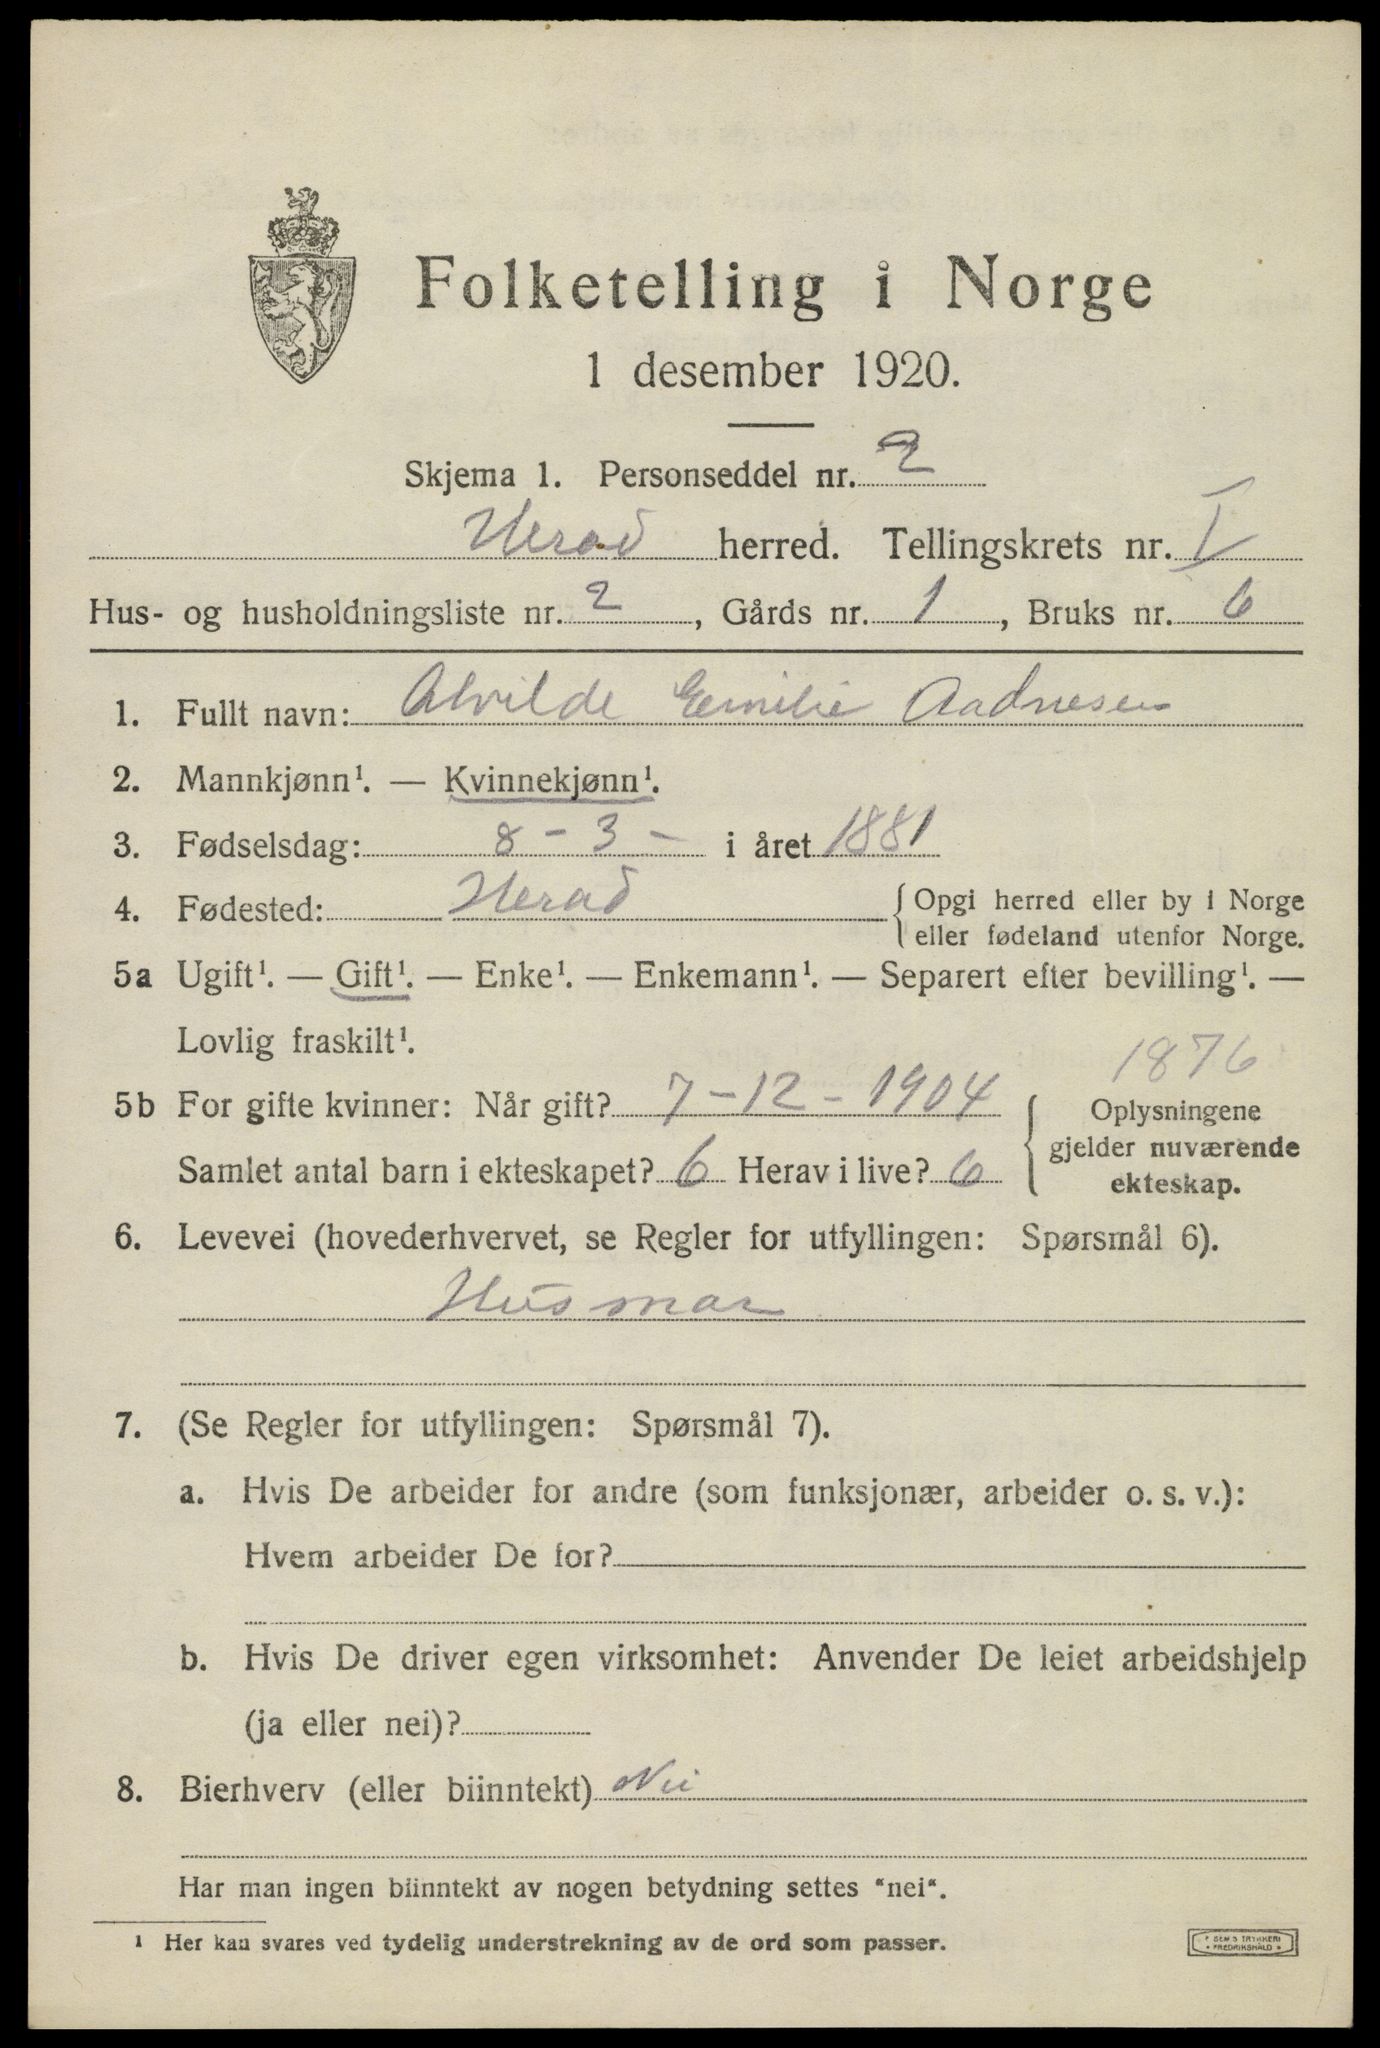 Folketelling i Norge
1 desember 1920.
Skjema 1. Personseddel nr. 2
Herad herred. Tellingskrets nr. I
Hus- og husholdningsliste nr. 2, Gårds nr. 1, Bruks nr. 6
1. Fullt navn: Alvilde Emilie Aadnesen
2. Mannkjønn¹. — Kvinnekjønn¹.
3. Fødselsdag: 8 - 3 - i året 1881
4. Fødested: Herad { Opgi herred eller by i Norge
eller fødeland utenfor Norge.
5a Ugift¹. — Gift¹. — Enke¹. — Enkemann¹. — Separert efter bevilling¹. —
Lovlig fraskilt¹.
1876
5b For gifte kvinner: Når gift? 7 - 12 - 1904 { Oplysningene
gjelder nuværende
Samlet antal barn i ekteskapet? 6 Herav i live? 6 ekteskap.
6. Levevei (hovederhvervet, se Regler for utfyllingen: Spørsmål 6).
Husmor
7. (Se Regler for utfyllingen: Spørsmål 7).
a. Hvis De arbeider for andre (som funksjonær, arbeider o. s. v.):
Hvem arbeider De for?
b. Hvis De driver egen virksomhet: Anvender De leiet arbeidshjelp
(ja eller nei)?
8. Bierhverv (eller biinntekt) Nei
Har man ingen biinntekt av nogen betydning settes "nei".
¹ Her kan svares ved tydelig understrekning av de ord som passer.
TRYKKERI
FREDRIKSHALD